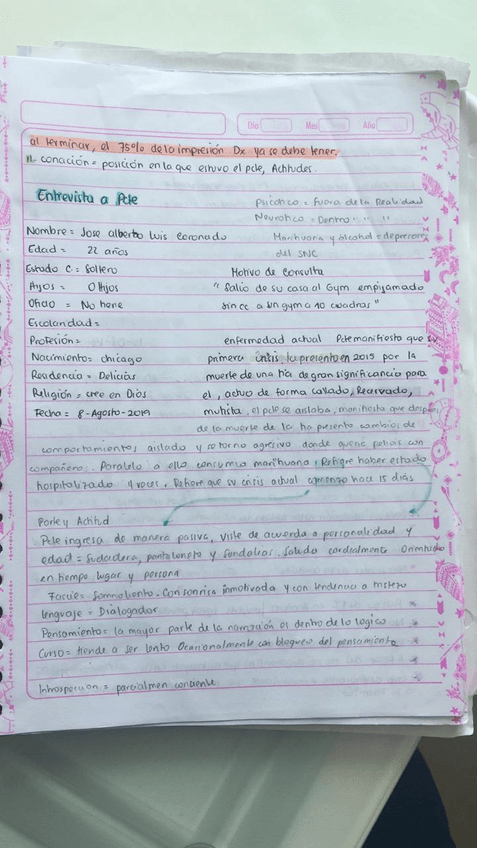 Día Mes Año
al terminar, el 75% de la impresión Dx ya se debe tener.
conación = posición en la que estuvo el pcte, Actitudes.
Entrevista a Pcte
Psicótico = Fuera de la Realidad
Neurótico = Dentro " " "
Nombre = Jose alberto Luis Coronado
Marihuana y alcohol = depresores
del SNC
Edad = 22 años
Estado C = Soltero
Motivo de Consulta
Hijos = 0 Hijos
" Salio de su casa al Gym empijamado
Oficio = No tiene
a un gym a 10 cuadras"
Escolaridad =
Profesión =
enfermedad actual Pcte manifiesta que su
Nacimiento = chicago
primera crisis la presento en 2015 por la
Residencia = Delicias
muerte de una tia de gran significancia para
Religión = cree en Dios
el, actuo de forma callado, Reservado,
Fecha = 8-Agosto-2019
mutista, el pcte se aislaba, manifiesta que despues
de la muerte de la tia presento cambios de
comportamientos, aislado y se torno agresivo donde queria pelear con
compañero. Paralelo a ello consumio marihuana. Refiere haber estado
hospitalizado 4 veces. Refiere que su crisis actual comenzo hace 15 dias
Porte y Actitud
Pcte ingresa de manera pasiva, viste de acuerdo a personalidad y
edad = Sudadera, pantaloneta y Sandalias. Saluda cordialmente Orientado
en tiempo lugar y persona
Facie = Somnoliento. Con sonrisa inmotivada y con tendencia a
Lenguaje = Dialogador
Pensamiento = la mayor parte de la narración es dentro de lo logico
Curso = tiende a ser lento Ocacionalmente con bloqueos del pensamiento
Introspección = parcialmen conciente